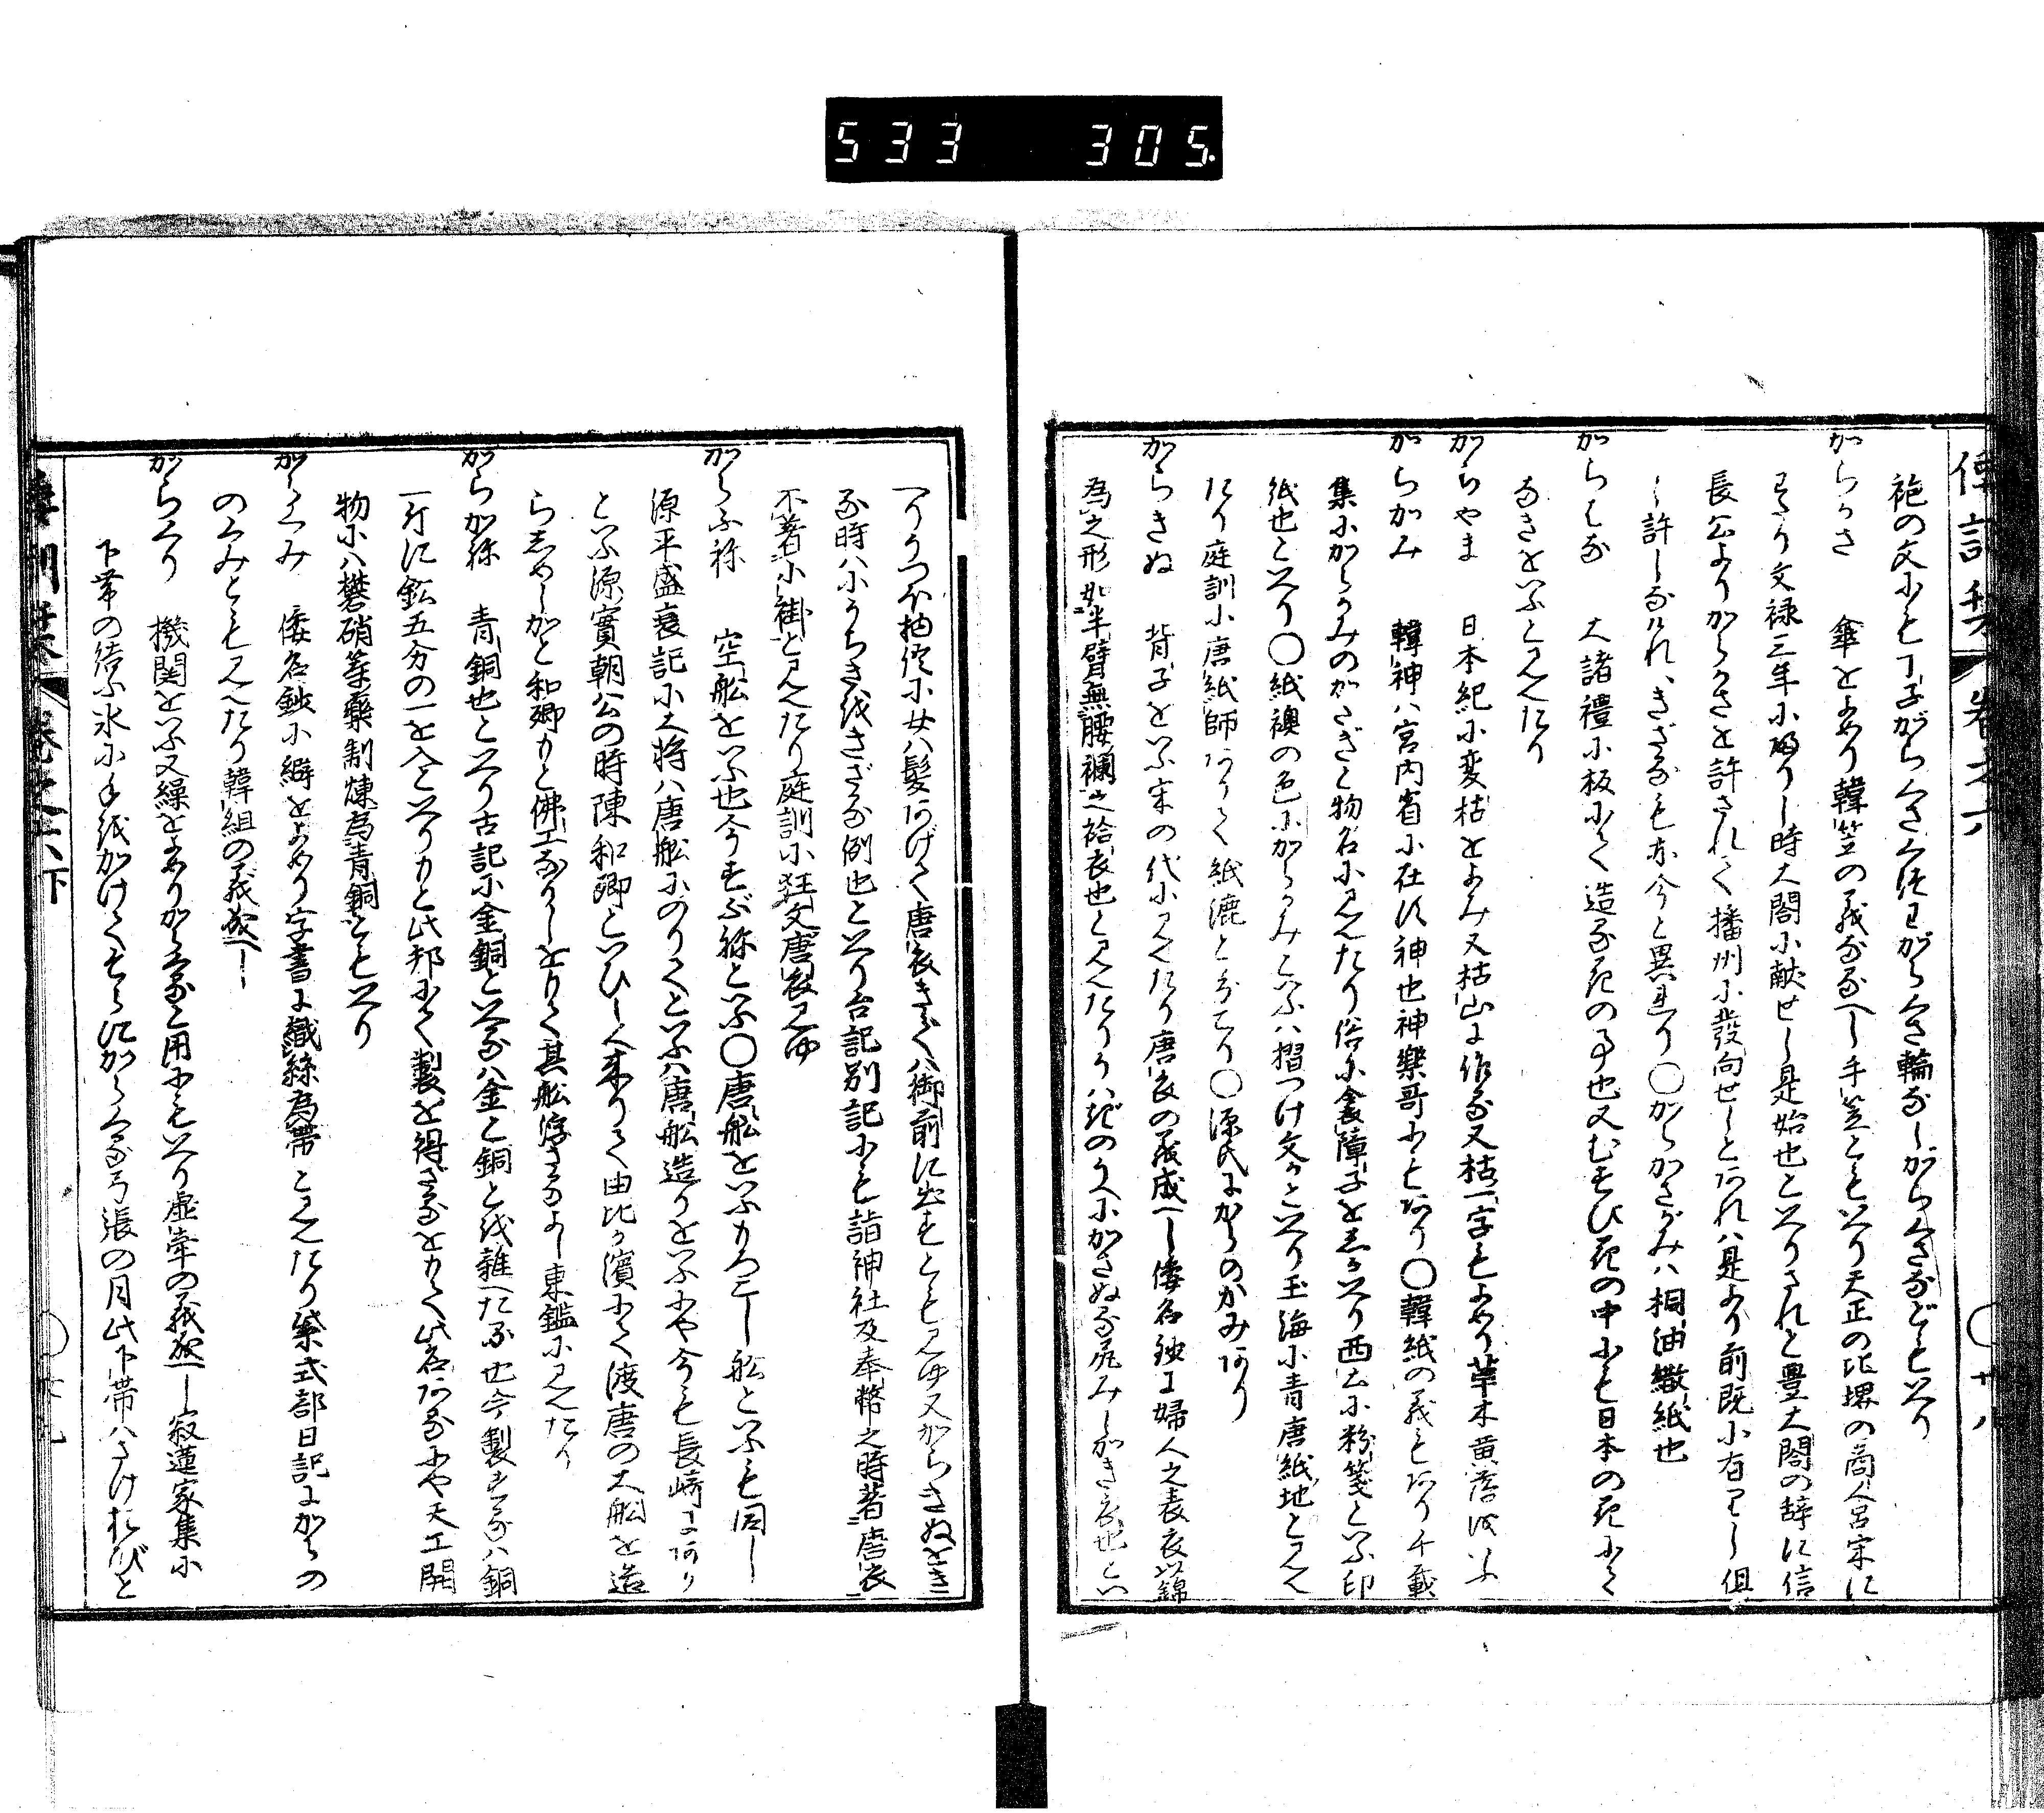 533 305.
倭訓栞 卷之六 ○廿八
袍の文にも丁子がらくさ久佐りがらくさ輪なしがらくさなどもいへり
からかさ 傘をよめり韓笠の義なるへし手笠ともいへり天正の比堺の商人呂宋に
わたり文禄三年に帰りし時大閤に献せし是始也といへりされと豊大閤の辞に信
長公よりからかさを許されて播州に發向せしとあれハ是より前既に有りし但
し許しなけれハきざるも亦今と異れり○からかさがみハ桐油繖紙也
からはな 大諸禮に板にて造る花の事也又むすひ花の中にも日本の花にて
なきをいふと見えたり
からやま 日本紀に変枯をよみ又枯山に作る又枯一字もよめり草木黄落をいふ
からかみ 韓神ハ宮内省に在す神也神樂哥にもあり○韓紙の義もあり千載
集にからかみのかざぎと物名に見えたり俗に衾障子をしかいへり西土に粉箋といふ印
紙也といへり○紙襖の色にからかみといふハ摺つけ文かといへり玉海に青唐紙地と見え
たり庭訓に唐紙師ありて紙漉と分てり○源氏にからのかみあり
からきぬ 背子をいふ宋の代に見えたり唐衣の義成へし倭名鈔に婦人之表衣以錦
為之形如半臂無腰襴之袷衣也と見えたりうハぎのうへにかさぬる屁みしかき衣也とい
へりうつほ物語に女ハ髪あげて唐衣きでハ御前に出すとも見ゆ又からきぬをき
る時ハ小うちきをきざる例也といへり台記別記にも詣神社及奉幣之時著唐衣
不著小褂と見えたり庭訓に狂文唐衣見ゆ
からふね 空船をいふ也今すぶねといふ○唐船をいふもろこし船といふも同し
源平盛衰記に大将ハ唐船にのりてといふハ唐船造りをいふにや今も長崎にあり
といふ源實朝公の時陳和卿といひし人来りて由比か濱にて渡唐の大船を造
らしめしかと和卿もと佛工なりしをもて其船浮さるよし東鑑に見えたり
からかね 青銅也といへり古記に金銅といへるハ金と銅とを雜へたる也今製するハ銅
一斤に鉛五分の一を入といへりもと此邦にて製を得ざるをもて此名あるにや天工開
物にハ礬硝等藥制煉為青銅ともいへり
からくみ 倭名鈔に綺をよめり字書に織絲為帶と見えたり紫式部日記にからの
のくみとも見えたり韓組の義成へし
からくり 機関をいふ又繰をよめりからまると用にもいへり虚牽の義成へし寂蓮家集に
下帯の結ふ氷に手をかけてもらにからくる弓張の月此下帯ハさけおびと
倭訓栞 卷之六下 ○廿九